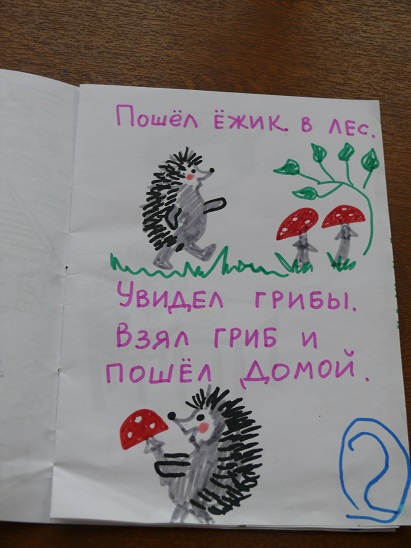 Пошёл ёжик в лес.
Увидел грибы.
Взял гриб и
пошёл домой.
2